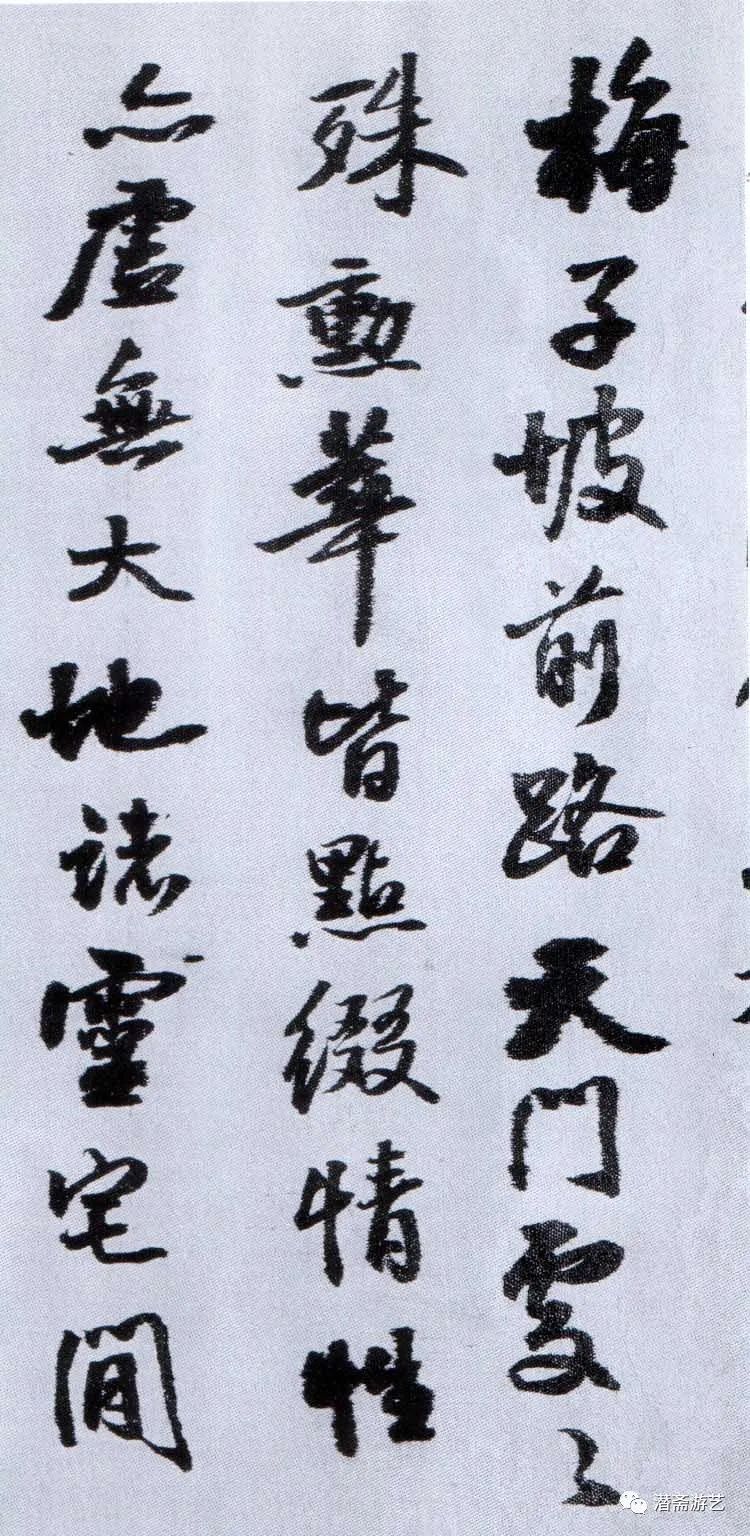 梅子坡前路天門處々
殊勳華皆點綴情性
亦虛無大地諸靈宅閒
潜斋游艺